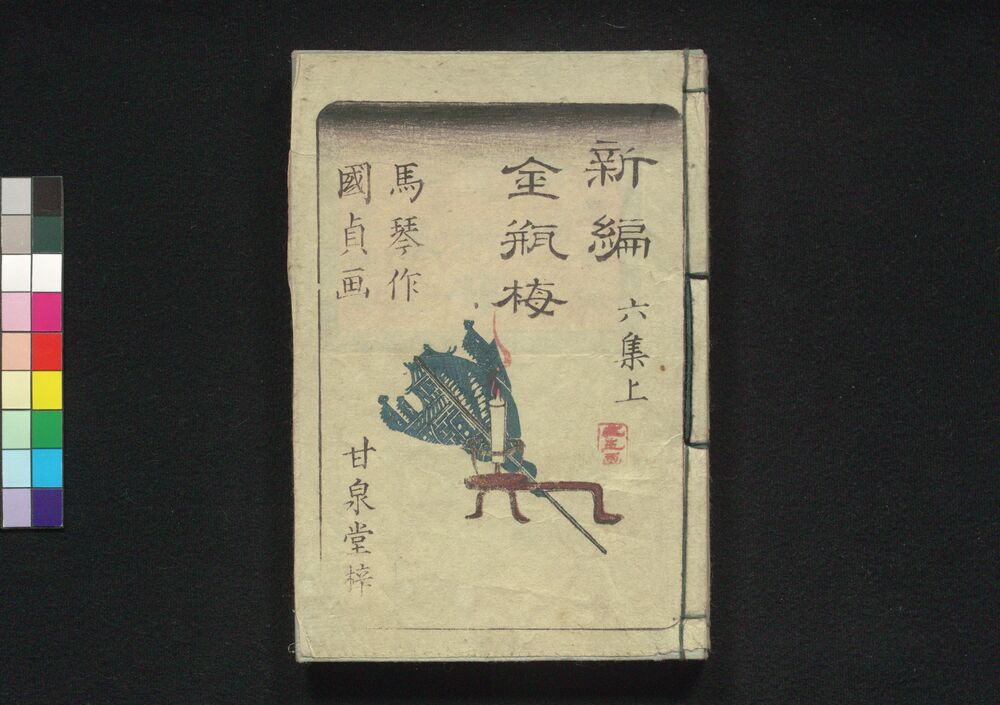 新編
金瓶梅
六集上
馬琴作
國貞画
甘泉堂梓